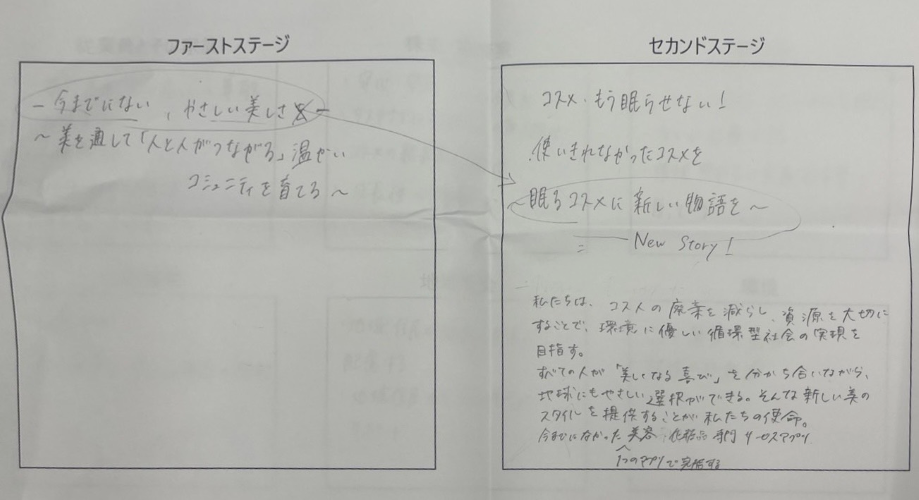 ファーストステージ
－今までにない、やさしい美しさ－
～美を通して「人と人がつながる」温かい
コミュニティを育てる～
セカンドステージ
コスメ・もう眠らせない！
使いきれなかったコスメを
～眠るコスメに新しい物語を～
New Story！
私たちは、コスメの廃棄を減らし、資源を大切に
することで、環境に優しい循環型社会の実現を
目指す。
すべての人が「美しくなる喜び」を分かち合いながら、
地球にもやさしい選択ができる。そんな新しい美の
スタイルを提供することが私たちの使命。
今までになかった美容・化粧品専門リユースアプリ
1つのアプリで完結する